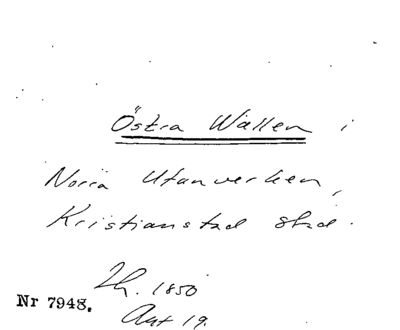 Östra Wallen i
Norra Utanverken,
Kristianstad stad.
Th. 1850
Ant 19.
Nr 7948.